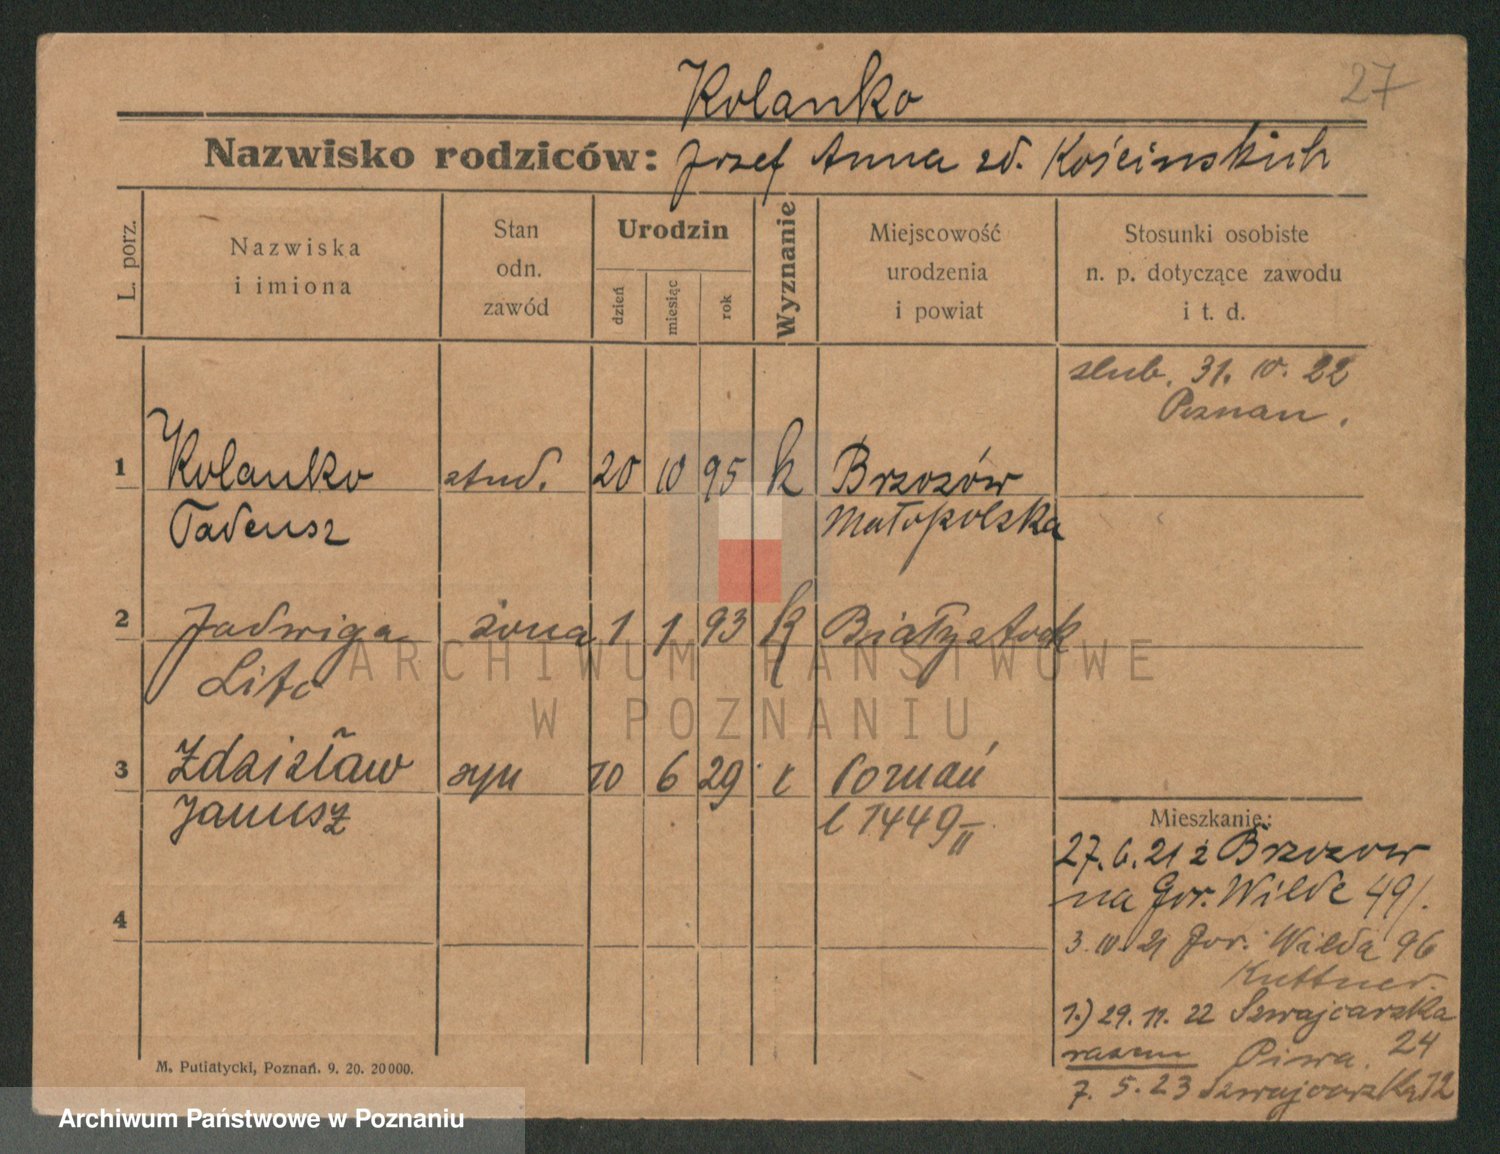 27
Kolanko
Nazwisko rodziców: Józef Anna zd. Kościńskich
L. porz.
Nazwiska i imiona
Stan odn. zawód
Urodzin
dzień
miesiąc
rok
Wyznanie
Miejscowość urodzenia i powiat
Stosunki osobiste n. p. dotyczące zawodu i t. d.
slub. 31. 10. 22
Poznan.
1 Kolanko stud. 20 10 95 k Brzozów
Tadeusz Małopolska
2 Jadwiga żona 1 1 93 k Białystok
3 Zdzisław syn 10 6 29 k Poznań
Janusz l 1449 II
4
Mieszkanie:
27. 6. 21 z Brzozow
na Gor. Wilde 49/.
3. 10. 21 Gor. Wilda 96
Kuttner.
1.) 29. 11. 22 Szwajcarska
razem Piwa. 24
7. 5. 23 Szwajcarska 12
M. Putiatycki, Poznań. 9. 20. 20000.
ARCHIWUM PAŃSTWOWE
W POZNANIU
Archiwum Państwowe w Poznaniu